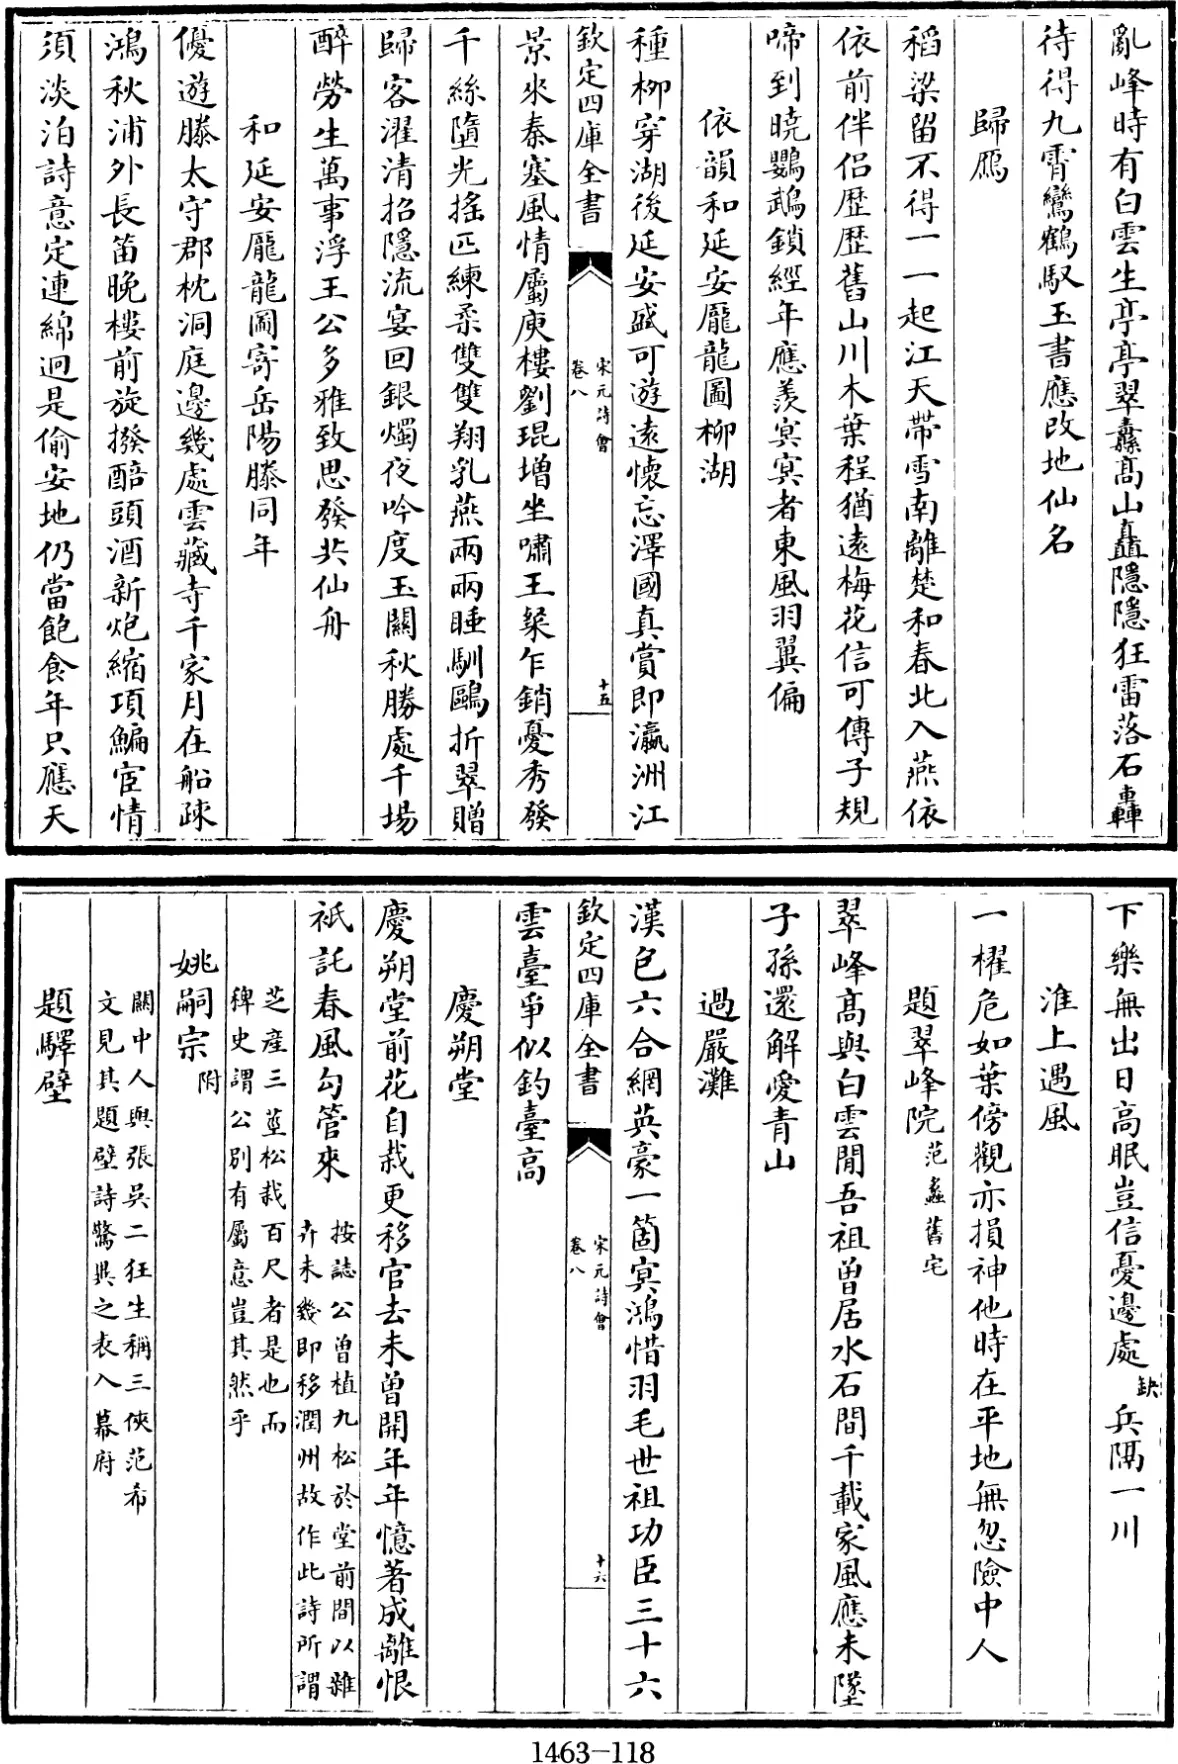 亂峰時有白雲生亭亭翠纛高山矗隱隱狂雷落石轟
待得九霄鸞鶴馭玉書應改地仙名
歸鴈
稻粱留不得一一起江天帶雪南離楚和春北入燕依
依前伴侣歷歷舊山川木葉程猶遠梅花信可傳子規
啼到曉鸚鵡鎖經年應羨㝠㝠者東風羽翼偏
依韻和延安龎龍圖柳湖
種柳穿湖後延安盛可遊遠懷忘澤國真賞即瀛洲江
欽定四庫全書
宋元詩會
卷八
十五
景來秦塞風情屬庾樓劉琨增坐嘯王粲乍銷憂秀發
千絲墮光搖匹練柔雙雙翔乳燕兩兩睡馴鷗折翠贈
歸客濯清招隱流宴回銀燭夜吟度玉關秋勝處千場
醉勞生萬事浮王公多雅致思發共仙舟
和延安龎龍圖寄岳陽滕同年
優遊滕太守郡枕洞庭邊幾處雲藏寺千家月在船疎
鴻秋浦外長笛晚樓前旋撥醅頭酒新炮縮項鯿宦情
須淡泊詩意定連綿迥是偷安地仍當飽食年只應天
下樂無出日高眠豈信憂邊處缺兵隔一川
淮上遇風
一櫂危如葉傍觀亦損神他時在平地無忽險中人
題翠峰院范蠡舊宅
翠峰髙與白雲閒吾祖曾居水石間千載家風應未墜
子孫還解愛青山
過嚴灘
漢包六合網英豪一箇㝠鴻惜羽毛世祖功臣三十六
欽定四庫全書
宋元詩會
卷八
十六
雲臺爭似釣臺高
慶朔堂
慶朔堂前花自栽更移官去未曾開年年憶著成離恨
祇託春風勾管來按誌公曾植九松於堂前間以雜
卉未幾即移潤州故作此詩所謂
芝産三莖松栽百尺者是也而
稗史謂公別有屬意豈其然乎
姚嗣宗附
關中人與張吳二狂生稱三俠范希
文見其題壁詩驚異之表入幕府
題驛壁
1463-118